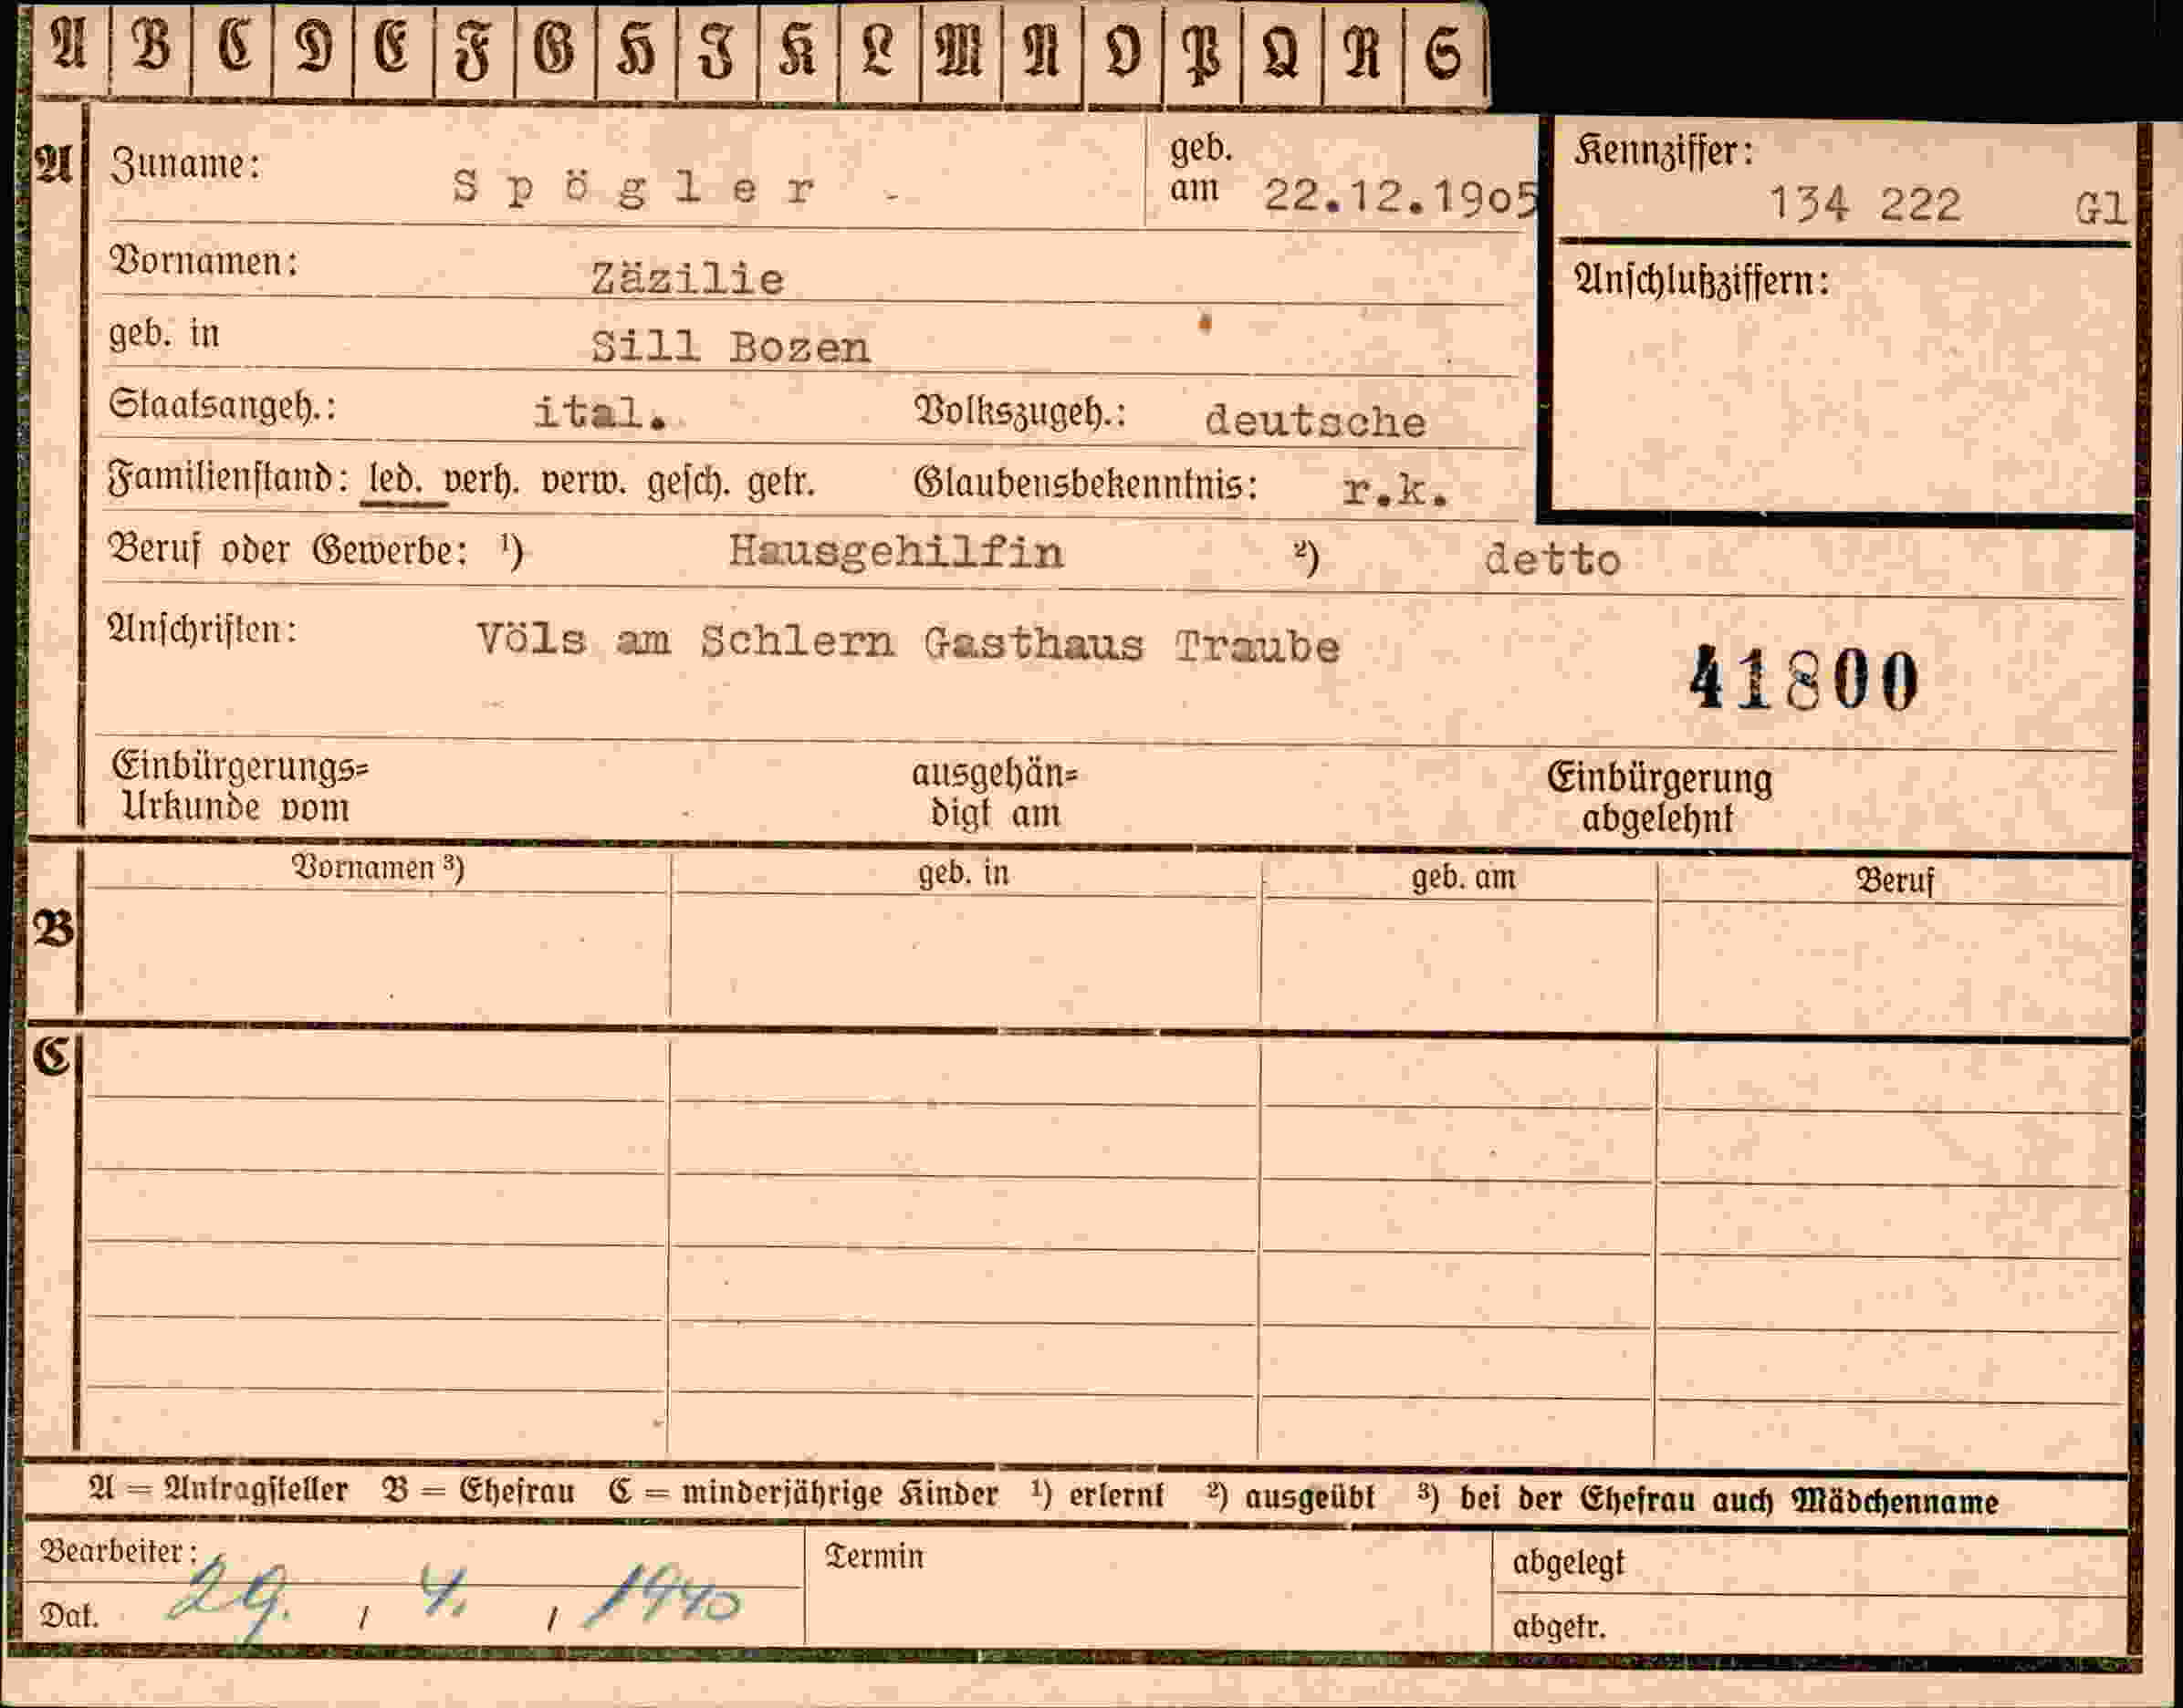 A B C D E F G H I K L M N O P Q R S
A Zuname: Spögler - geb. am 22.12.1905 Kennziffer: 134 222 Gl
Vornamen: Zäzilie Anschlußziffern:
geb. in Sill Bozen
Staatsangeh.: ital. Volkszugeh.: deutsche
Familienstand: led. verh. verw. gesch. getr. Glaubensbekenntnis: r.k.
Beruf oder Gewerbe: ¹) Hausgehilfin ²) detto
Anschriften: Völs am Schlern Gasthaus Traube
41800
Einbürgerungs= ausgehän= Einbürgerung
Urkunde vom digt am abgelehnt
Vornamen ³) geb. in geb. am Beruf
B
C
A = Antragsteller B = Ehefrau C = minderjährige Kinder ¹) erlernt ²) ausgeübt ³) bei der Ehefrau auch Mädchenname
Bearbeiter: Termin abgelegt
Dat. 29. / 4. / 1940 abgetr.